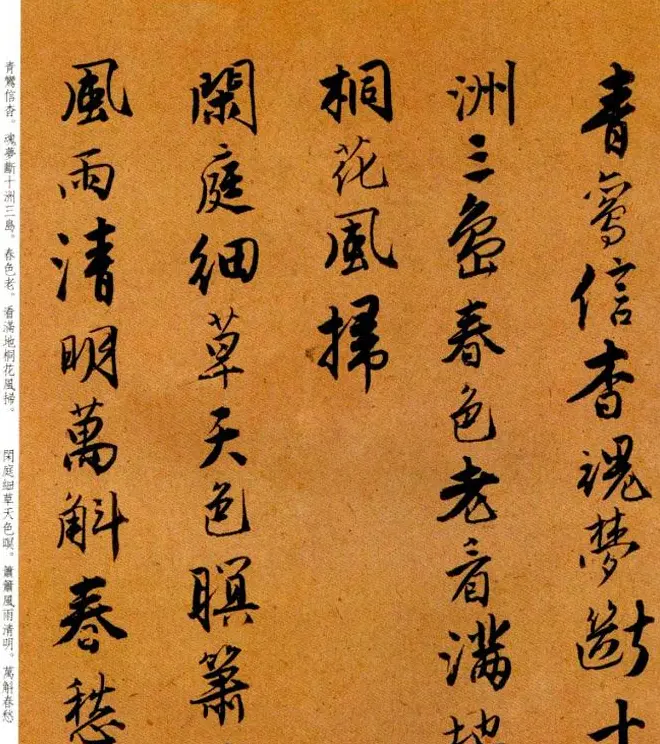 青鸞信杳魂夢斷十
洲三島春色老看滿地
桐花風掃
閑庭細草天色暝蕭
風雨清明萬斛春愁
青鸞信杳。魂夢斷十洲三島。春色老。看滿地桐花風掃。 閑庭細草天色暝。蕭蕭風雨清明。萬斛春愁